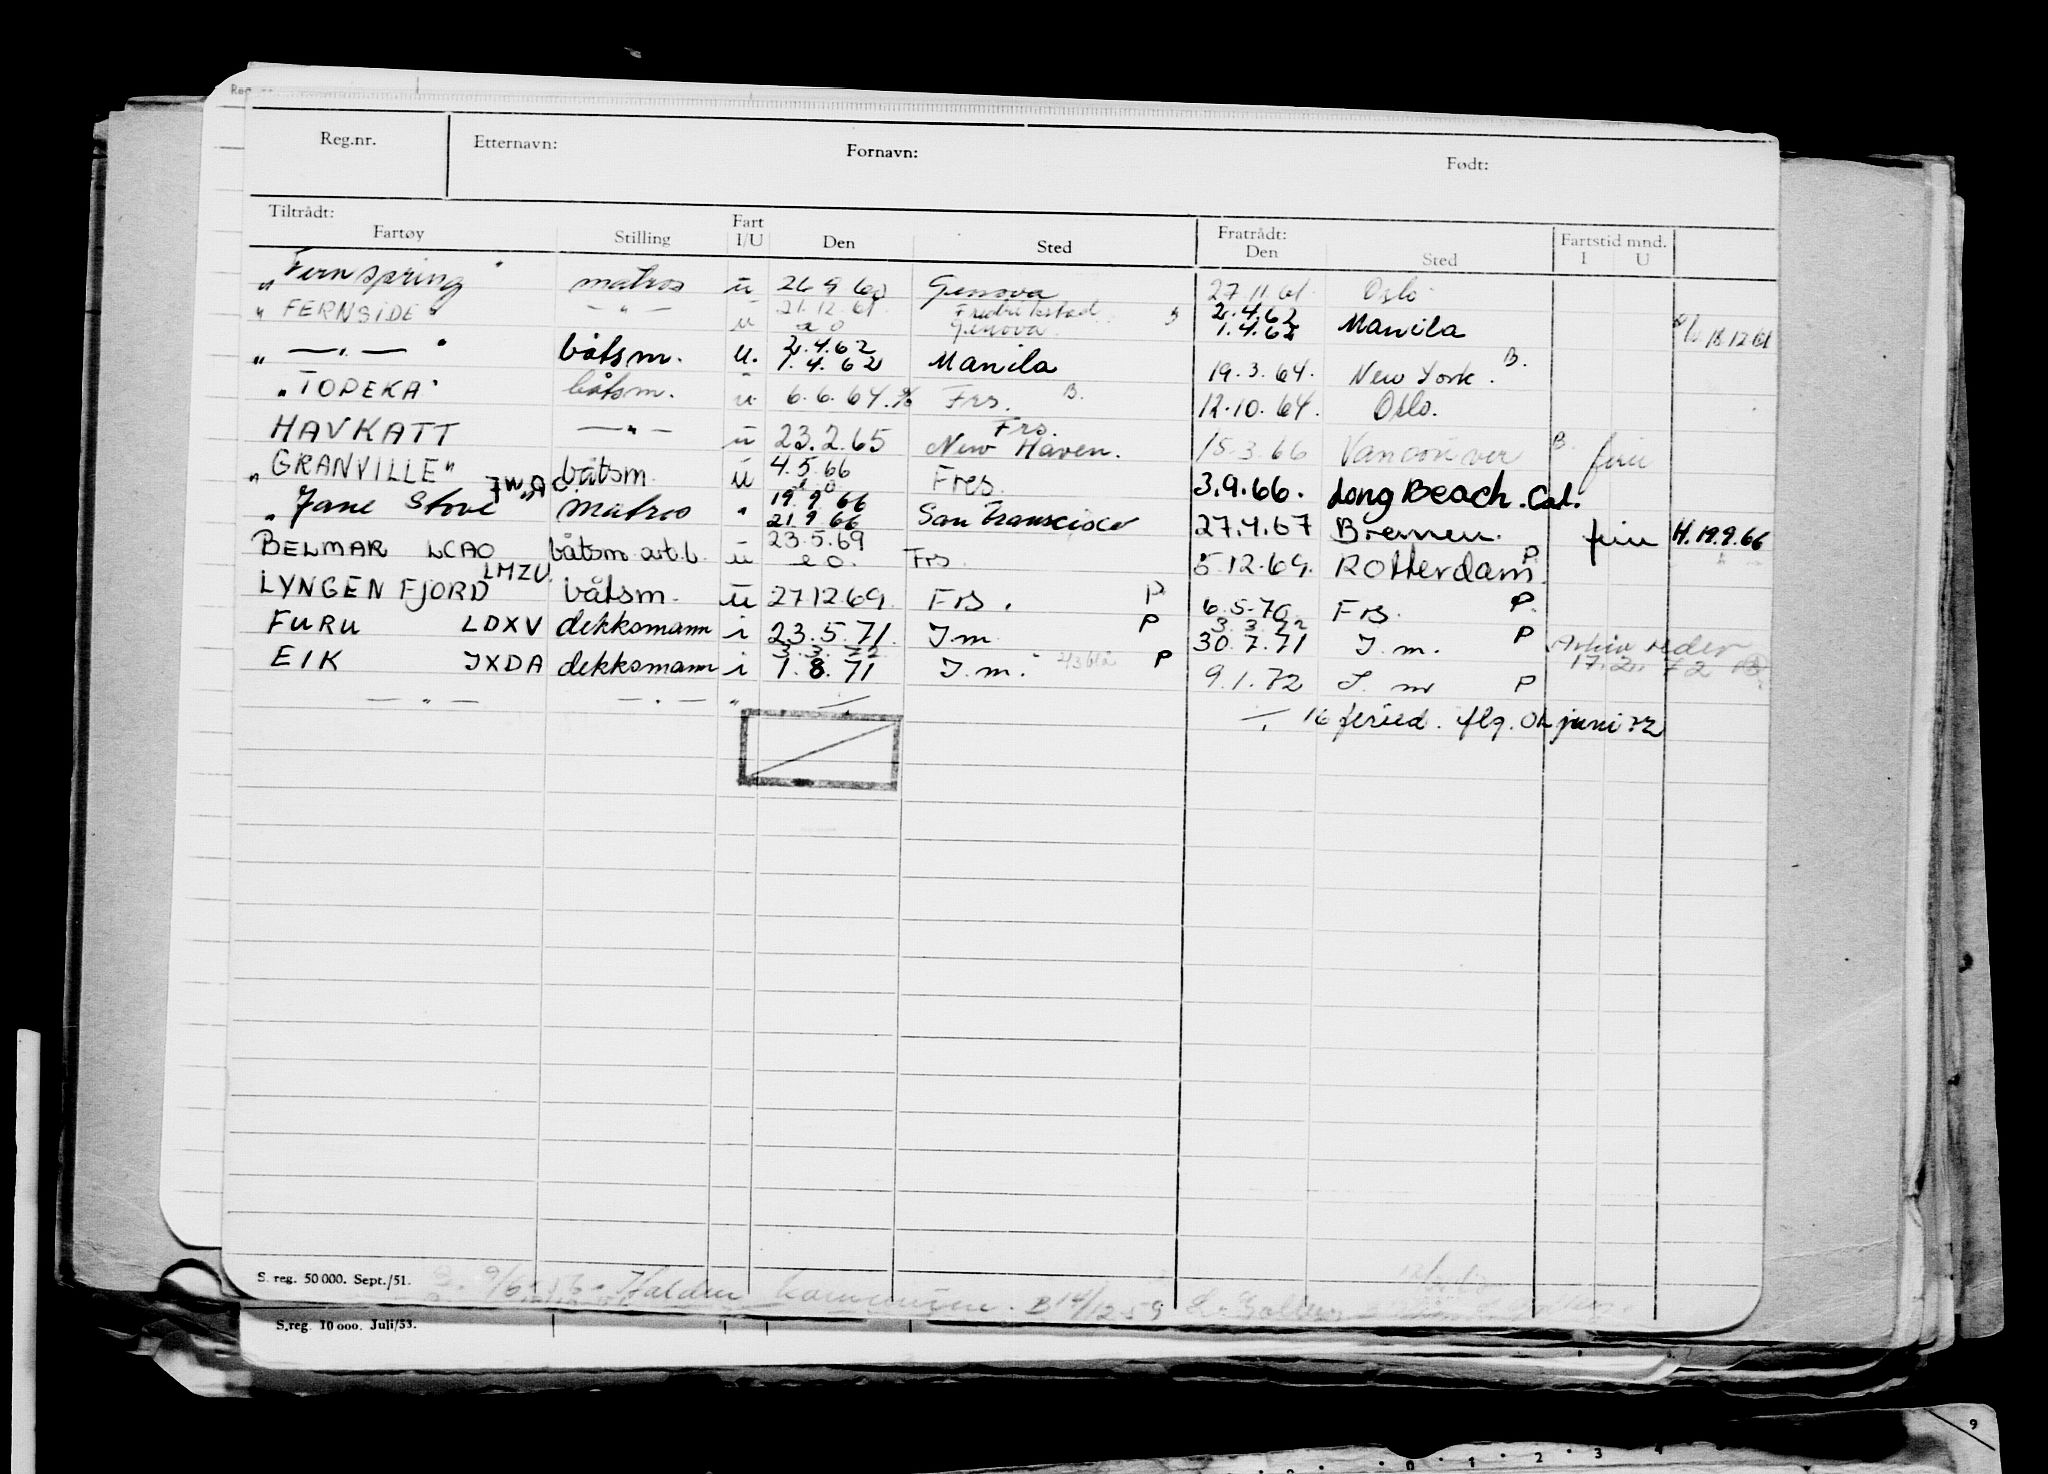 Reg.nr. Etternavn: Fornavn: Født:
Tiltrådt: Fart Fratrådt: Fartstid mnd.
Fartøy Stilling I/U Den Sted Den Sted I U
"Fernspring" matros u 26 9 60 Genova 27 11 61. Oslo
"FERNSIDE" — " — u 21.12.61 Fredrikstad B 2.4.62 Manila 18 12 61
a o Genova 1.4.62
" — " — " båtsm. u. 2.4.62 Manila 19.3.64. New York. B.
1.4.62
"TOPEKA" båtsm. u 6.6.64. Frs. B. 12.10.64. Oslo.
HAVKATT — " — u 23.2.65 Frs. New Haven. 15.3.66 Vancouver B.
"GRANVILLE" båtsm. u 4.5.66 Fres. 3.9.66. Long Beach. Cal.
a o
"Jane Stove" matros " 19 9 66 San Francisco 27.4.67 Bremen. H. 19.9.66
21 9 66
BELMAR LCAO båtsm u 23.5.69 Frs. 5.12.69. Rotterdam P
a o.
LYNGENFJORD LMZU båtsm. u 27.12.69. Frs. P 6.5.70 Frs. P
3.3.72
FURU LDXV dekksmann i 23.5.71. I.m. P 30.7.71 I.m. P
3.3.72 17.2. 72
EIK JXDA dekksmann i 1.8.71 I.m. P 9.1.72 I. m P
— " — — " — " juni 72
S. reg. 50 000. Sept./51.
Halden B 14/12 59
S.reg. 10 000. Juli/53.
0 1 2 3
9